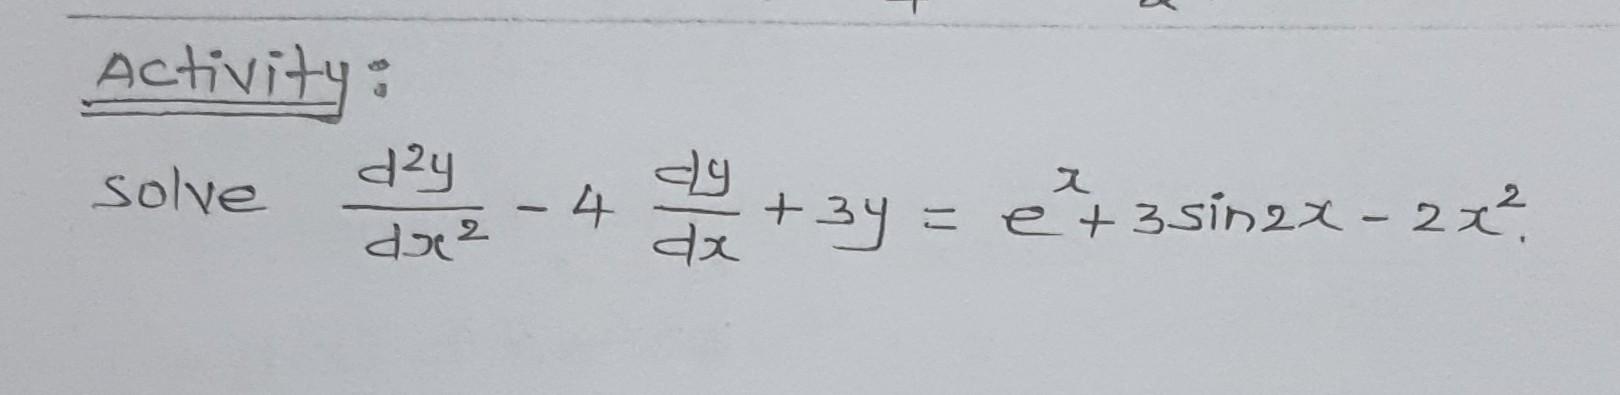 Activity:
Solve d²y/dx² - 4 dy/dx + 3y = eˣ + 3sin2x - 2x².